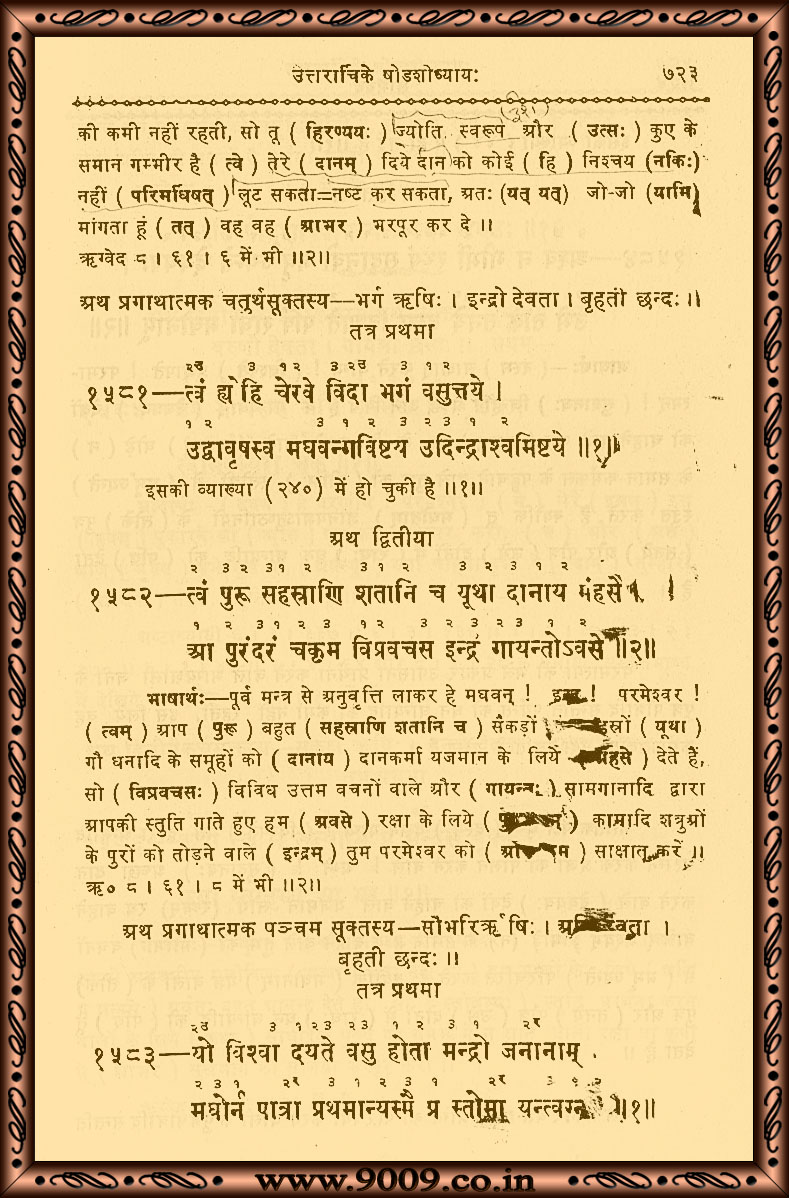 उत्तरार्चिके षोडशोध्यायः ७२३
की कमी नहीं रहती, सो तू ( हिरण्ययः ) ज्योति स्वरूप और ( उत्सः ) कुए के
समान गम्भीर है ( त्वे ) तेरे ( दानम् ) दिये दान को कोई ( हि ) निश्चय (नकिः)
नहीं ( परिमर्धिषत् ) लूट सकता=नष्ट कर सकता, अतः (यत् यत्) जो-जो (यामि)
मांगता हूं ( तत् ) वह वह ( आभर ) भरपूर कर दे ॥
ऋग्वेद ८ । ६१ । ६ में भी ॥२॥
अथ प्रगाथात्मक चतुर्थसूक्तस्य—भर्ग ऋषिः । इन्द्रो देवता । बृहती छन्दः ॥
तत्र प्रथमा
२उ ३ १२ ३ २उ ३ १ २
१५८१—त्वं ह्येहि चेरवे विदा भगं वसुत्तये ।
१ २ ३ १ २ ३ २ ३ १ २
उद्वावृषस्व मघवन्गविष्टय उदिन्द्राश्वमिष्टये ॥१॥
इसकी व्याख्या (२४०) में हो चुकी है ॥१॥
अथ द्वितीया
२ ३ २ ३१ २ ३१ २ ३ २ ३ १ २
१५८२—त्वं पुरू सहस्राणि शतानि च यूथा दानाय मंहसे ।
१ २ ३१ २ ३ १२ ३ २ ३ २३ १ २
आ पुरंदरं चकृम विप्रवचस इन्द्रं गायन्तोऽवसे ॥२॥
भाषार्थः—पूर्व मन्त्र से अनुवृत्ति लाकर हे मघवन् ! ! परमेश्वर !
( त्वम् ) आप ( पुरू ) बहुत ( सहस्राणि शतानि च ) सैंकड़ों ( यूथा )
गौ धनादि के समूहों को ( दानाय ) दानकर्मा यजमान के लिये ) देते हैं,
सो ( विप्रवचसः ) विविध उत्तम वचनों वाले और ( गायन्तः ) सामगानादि द्वारा
आपकी स्तुति गाते हुए हम ( अवसे ) रक्षा के लिये ( ) कामादि शत्रुओं
के पुरों को तोड़ने वाले ( इन्द्रम् ) तुम परमेश्वर को ( ) साक्षात् करें ॥
ऋ० ८ । ६१ । ८ में भी ॥२॥
अथ प्रगाथात्मक पञ्चम सूक्तस्य—सौभरिर्ऋषिः । ।
बृहती छन्दः ॥
तत्र प्रथमा
२उ ३ १ २३ २३ १ २ ३ १ २र
१५८३—यो विश्वा दयते वसु होता मन्द्रो जनानाम् .
२ ३ १ २र ३ १ २ ३ १ २र ३ १ २
मधोर्न पात्रा प्रथमान्यस्मै प्र स्तोमा यन्त्वग्नये ॥१॥
www.9009.co.in